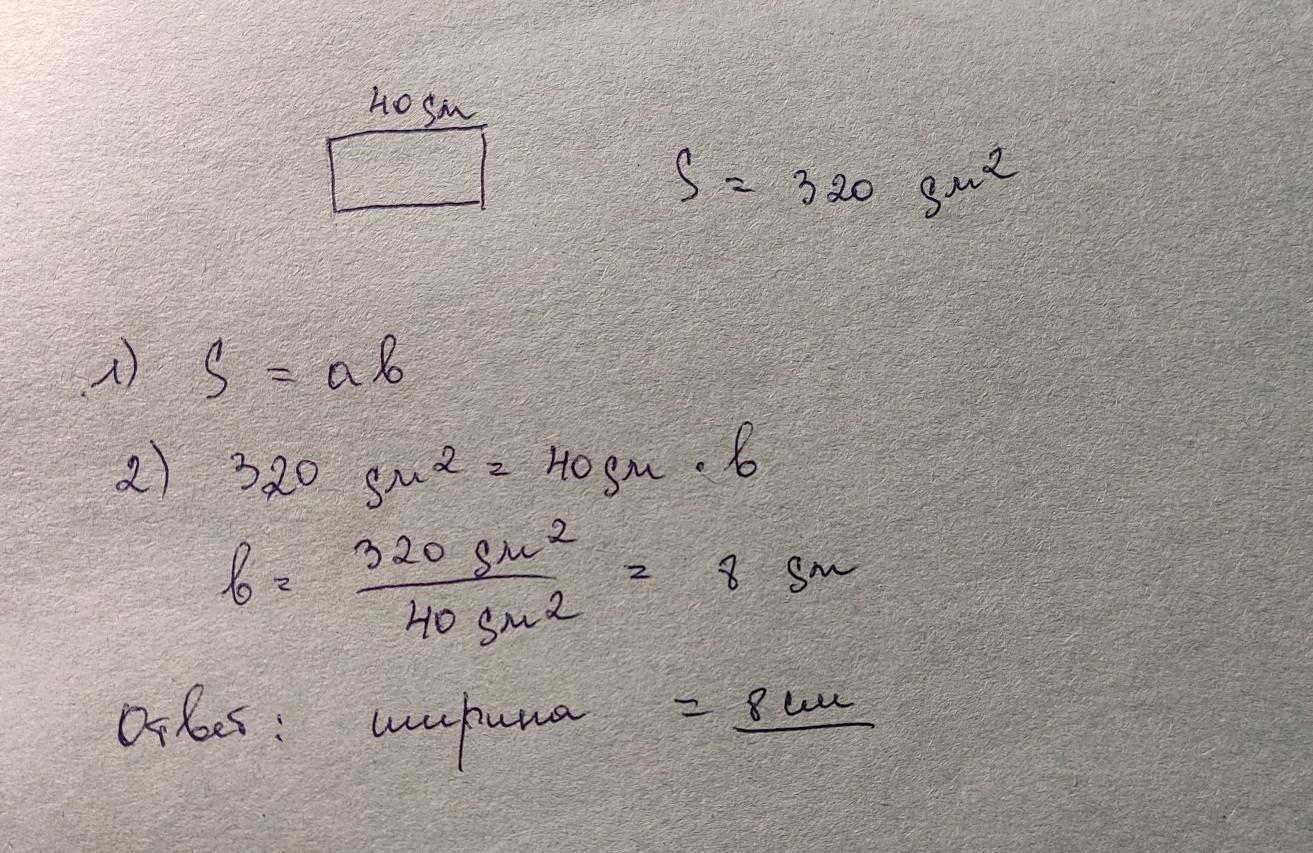 40 дм
S = 320 дм²
1) S = ab
2) 320 дм² = 40 дм · b
b = 320 дм² / 40 дм² = 8 дм
Ответ: ширина = 8 см